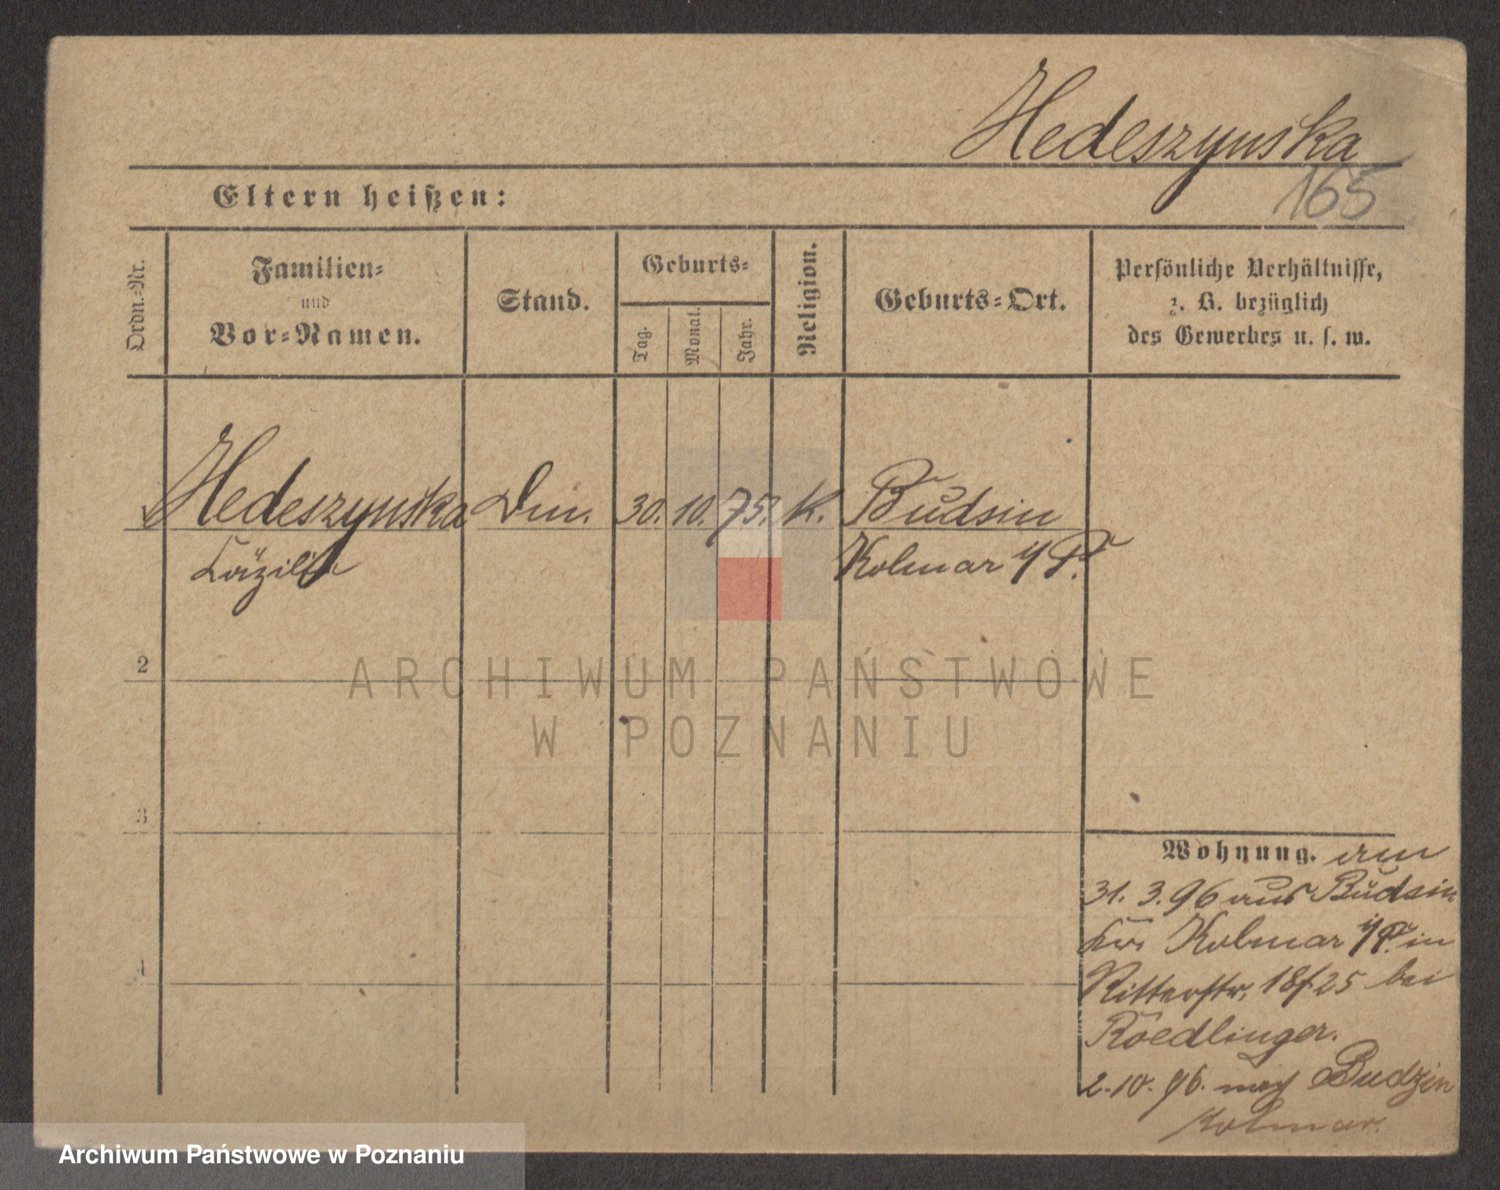 Hedeszynska
165
Eltern heißen:
Ordn.-Nr.
Familien-
und
Vor-Namen.
Stand.
Geburts-
Tag.
Monat.
Jahr.
Religion.
Geburts-Ort.
Persönliche Verhältnisse,
z. B. bezüglich
des Gewerbes u. s. w.
Hedeszynska Dm. 30. 10. 75. K. Budsin
Cäzilie Kolmar i/P.
2
3
4
ARCHIWUM PAŃSTWOWE
W POZNANIU
Wohnung. am
31. 3. 96 aus Budsin
Krs. Kolmar i/P. in
Ritterstr. 18/25 bei
Roedlinger.
2. 10. 96. nach Budzin
Kolmar.
Archiwum Państwowe w Poznaniu